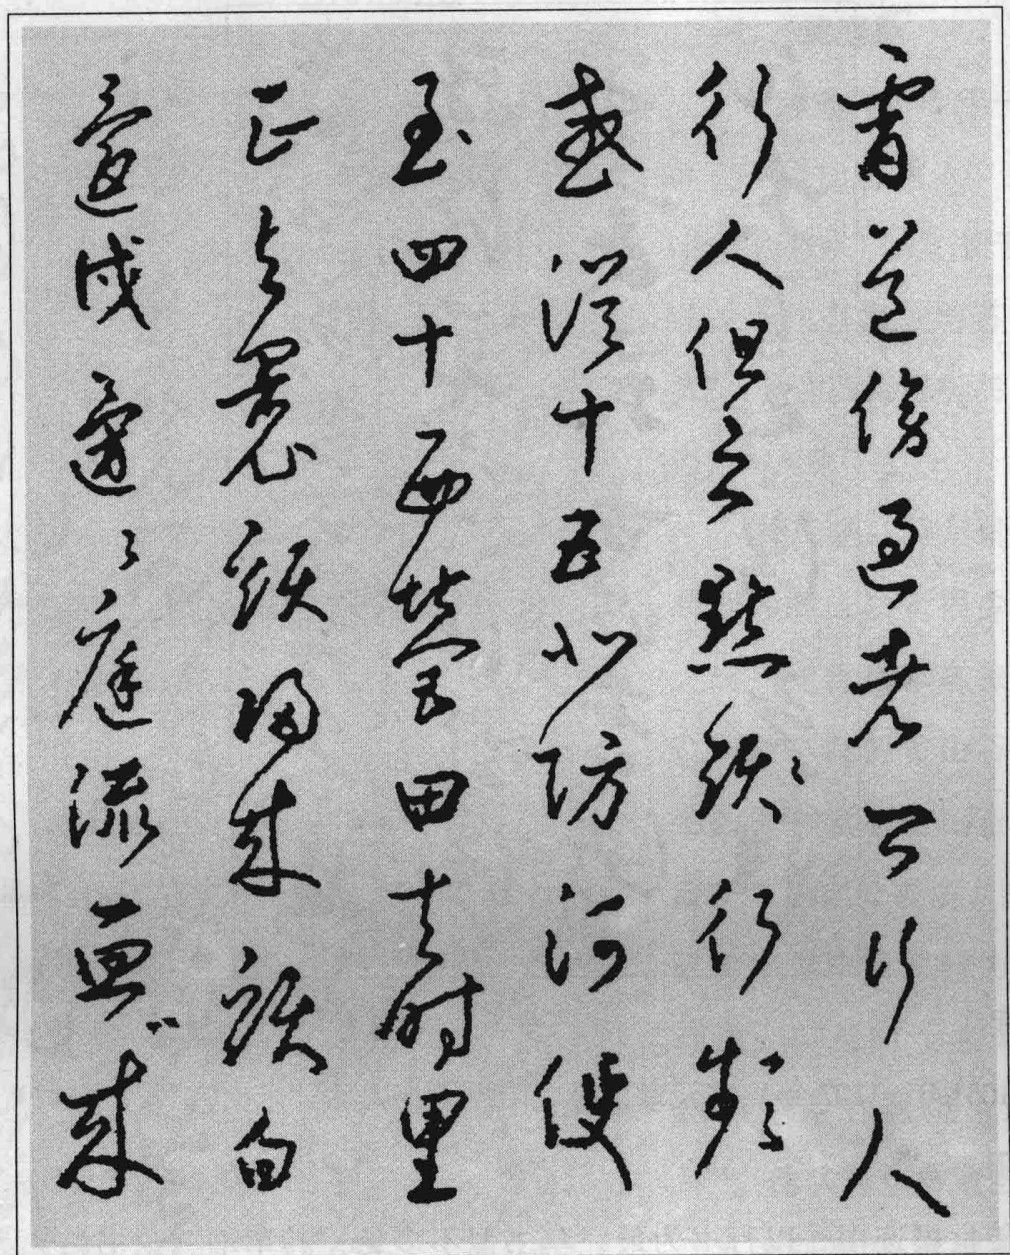 霄道傍過者问行人
行人但云點頭行頻
或從十五北防河便
至四十西營田去時里
正与裹頭歸來頭白
還戍邊〻庭流血成